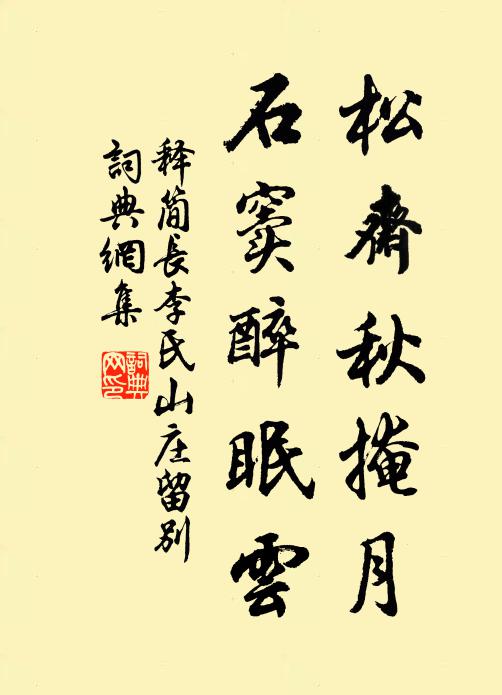 松齋秋掩月
石窦醉眠雲
释简長李氏山庄留别
詞典網集
詞典网印